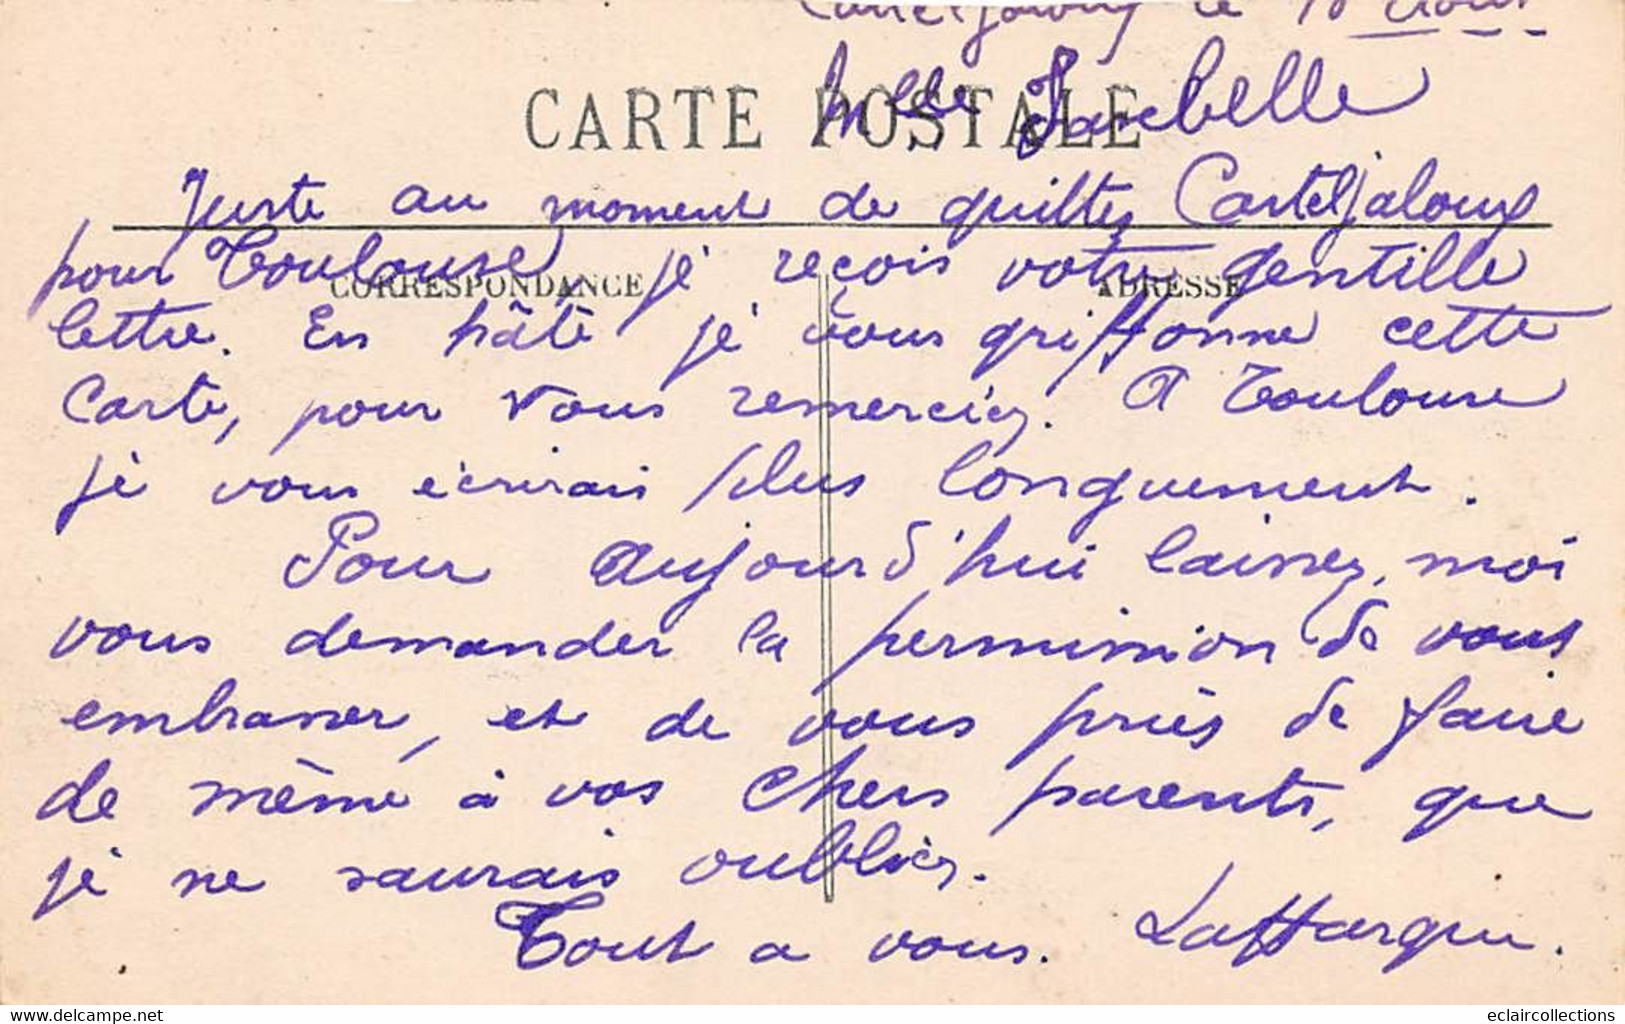 Casteljaloux le 10 Août
Mlle Isabelle
CARTE POSTALE
Juste au moment de quitter Casteljaloux
pour Toulouse je reçois votre gentille
CORRESPONDANCE ADRESSE
lettre. En hâte je vous griffonne cette
Carte, pour vous remercier. A Toulouse
je vous écrirais plus longuement.
Pour aujourd'hui laissez-moi
vous demander la permission de vous
embrasser, et de vous prier de faire
de même à vos chers parents, que
je ne saurais oublier.
Tout a vous. Laffargue.
www.delcampe.net
eclaircollections